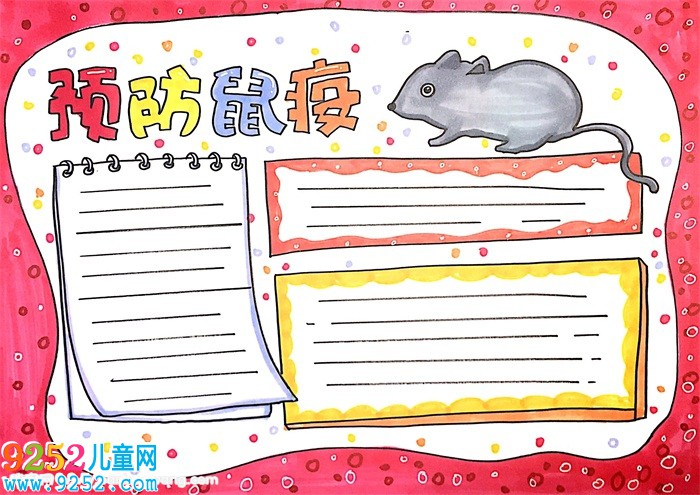 预防鼠疫
9252儿童网
www.9252.com